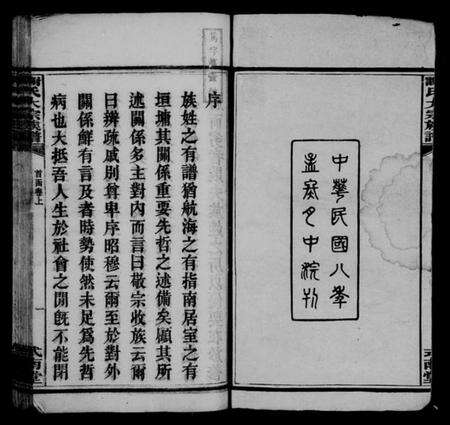 中華民國八年
孟冬月中浣刋
謝氏大宗族譜
序
族姓之有譜猶航海之有指南居室之有
垣墉其關係重要先哲之述備矣顧其所
述關係多主對內而言曰敬宗收族云爾
曰辨疏戚別尊卑序昭穆云爾至於對外
關係鮮有言及者時勢使然未足為先哲
病也大抵吾人生於社會之間旣不能閉
謝氏大宗族譜
首面卷上
一